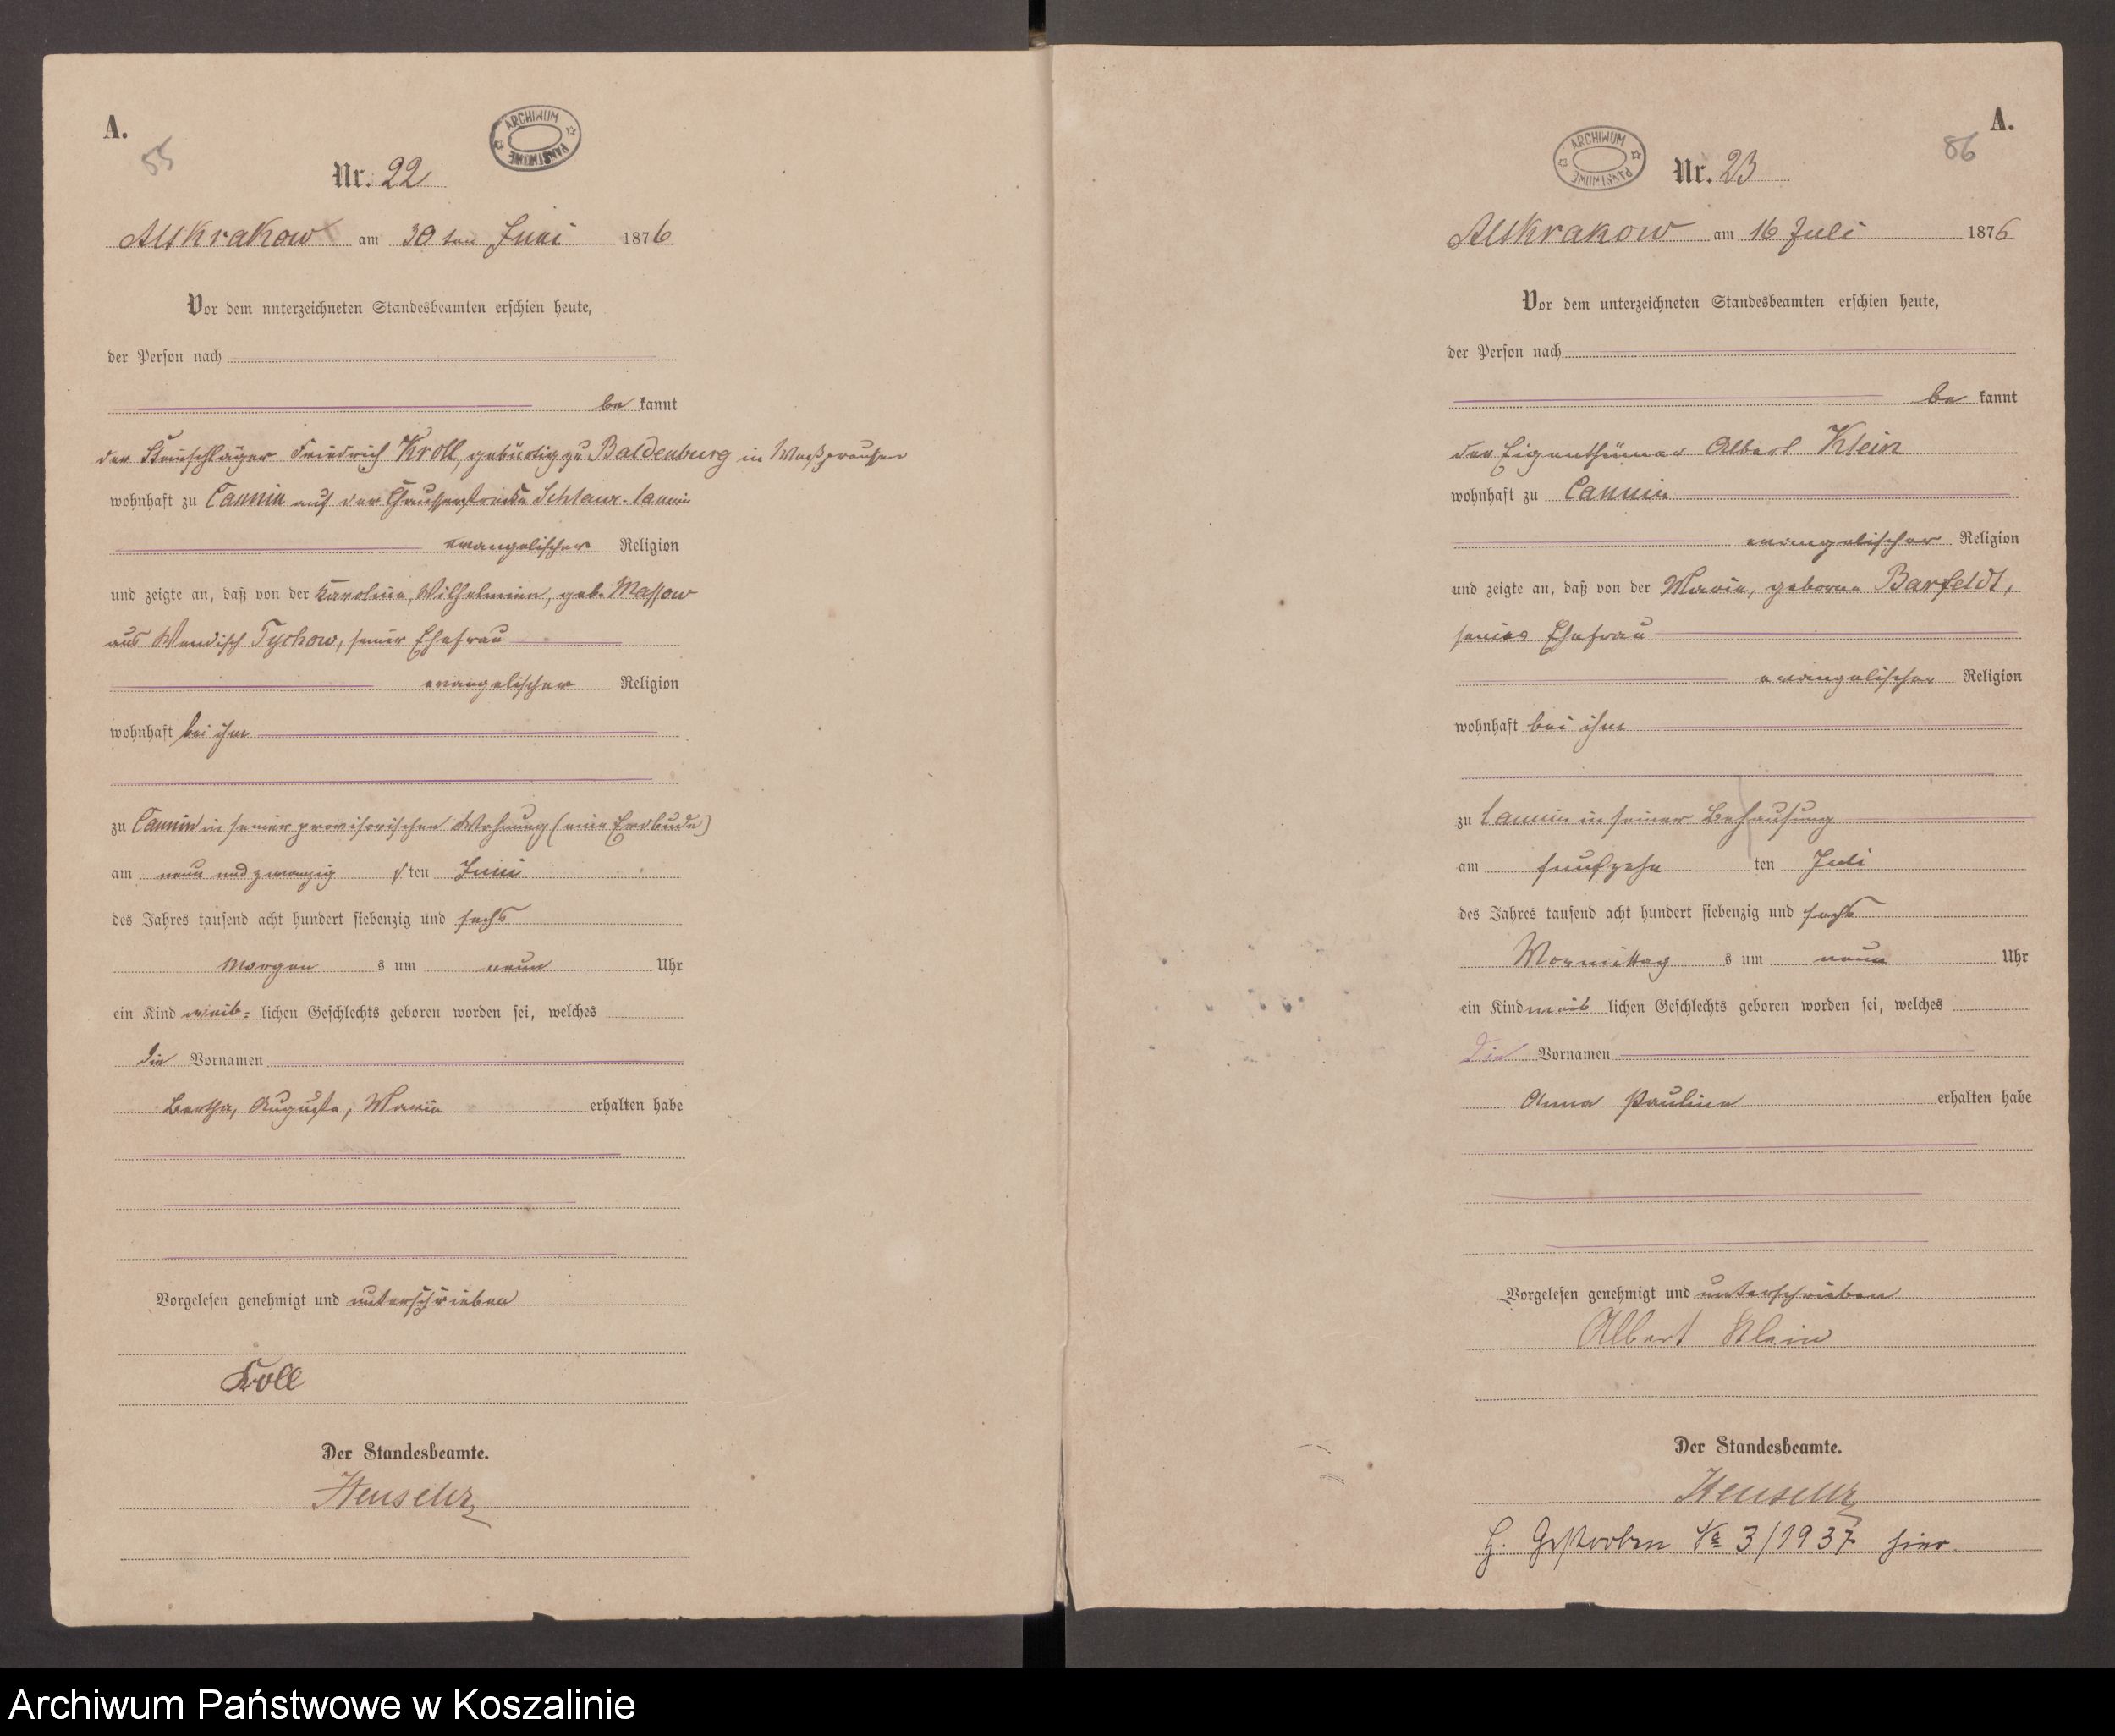 A.
55
ARCHIWUM PAŃSTWOWE
Nr. 22
Altkrakow am 30 ten Juni 1876
Vor dem unterzeichneten Standesbeamten erschien heute,
der Person nach
be kannt
der Steinschläger Friedrich Kroll, gebürtig zu Baldenburg in Westpreußen
wohnhaft zu Cannin auf der Chausseestrecke Schlawe-Cannin
evangelischer Religion
und zeigte an, daß von der Karoline, Wilhelmine, geb. Massow
aus Wendisch Tychow, seiner Ehefrau
evangelischer Religion
wohnhaft bei ihm
zu Cannin in seiner provisorischen Wohnung (eine Erdbude)
am neun und zwanzig sten Juni
des Jahres tausend acht hundert siebenzig und sechs
Morgen s um neun Uhr
ein Kind weib= lichen Geschlechts geboren worden sei, welches
die Vornamen
Bertha, Auguste, Marie erhalten habe
Vorgelesen genehmigt und unterschrieben
Kroll
Der Standesbeamte.
A.
86
ARCHIWUM PAŃSTWOWE
Nr. 23
Altkrakow am 16 Juli 1876
Vor dem unterzeichneten Standesbeamten erschien heute,
der Person nach
be kannt
der Eigenthümer Albert Klein
wohnhaft zu Cannin
evangelischer Religion
und zeigte an, daß von der Marie, geborne Barfeldt,
seiner Ehefrau
evangelischer Religion
wohnhaft bei ihm
zu Cannin in seiner Behausung
am funfzehn ten Juli
des Jahres tausend acht hundert siebenzig und sechs
Vormittag s um neun Uhr
ein Kind weib lichen Geschlechts geboren worden sei, welches
die Vornamen
Anna Pauline erhalten habe
Vorgelesen genehmigt und unterschrieben
Albert Klein
Der Standesbeamte.
G. Gestorben No 3/1937 hier.
Archiwum Państwowe w Koszalinie